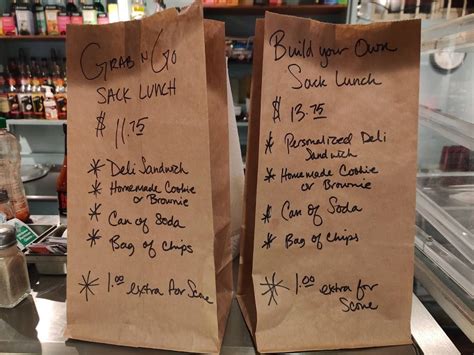 GRAB N GO
SACK LUNCH
$ 11.75
* Deli Sandwich
* Homemade Cookie
or Brownie
* Can of Soda
* Bag of Chips
* 1.00 extra for Scone
Build your Own
Sack Lunch
$ 13.75
* Personalized Deli
Sandwich
* Homemade Cookie
or Brownie
* Can of Soda
* Bag of Chips
* 1.00 extra for
Scone